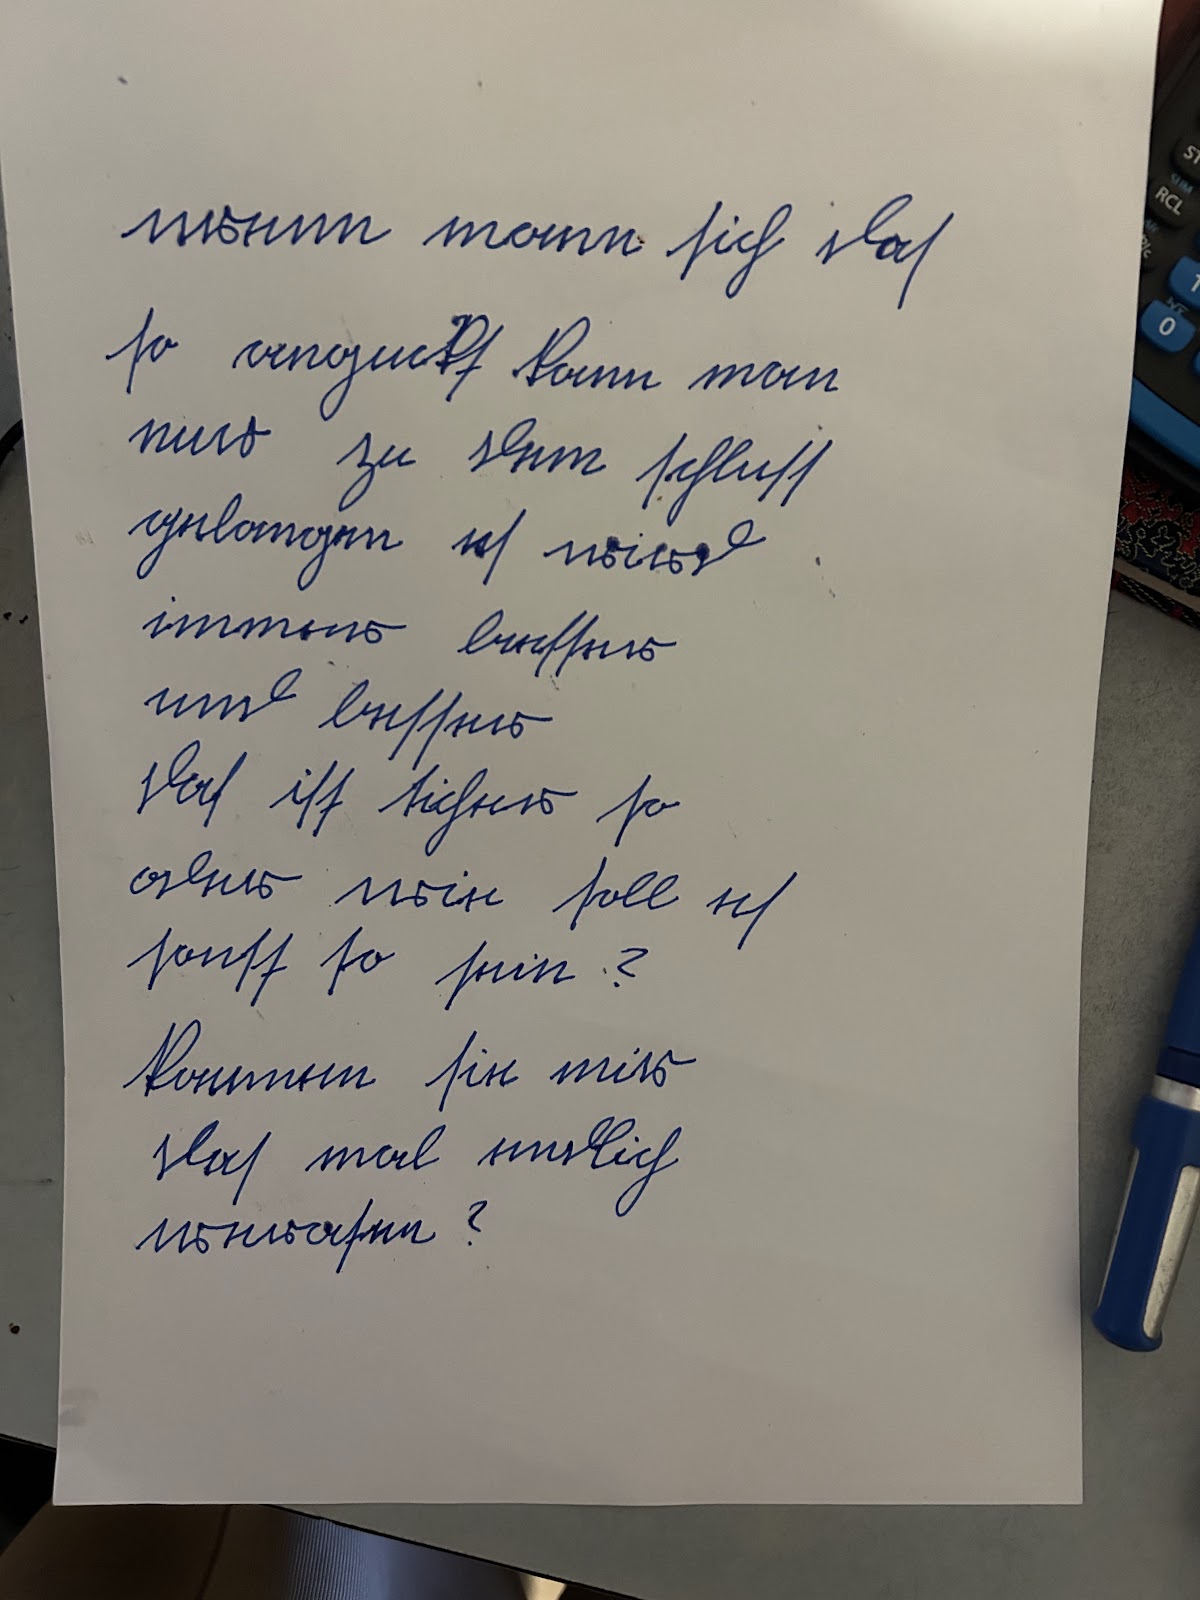 wenn mann sich das
so anguckt kann man
nur zu dem schluss
gelangen es wird
immer besser
und besser
das ist sicher so
aber wie soll es
sonst so sein ?
kommen sie mir
das mal endlich
verraten ?